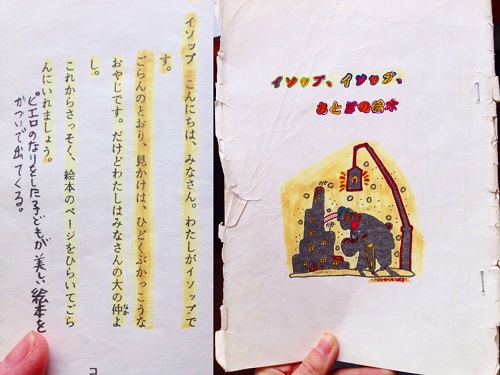 イソップ　こんにちは、みなさん。わたしがイソップで
す。
ごらんのとおり、見かけは、ひどくぶかっこうな
おやじです。だけどわたしはみなさんの大の仲よ
し。
これからさっそく、絵本のページをひらいてごら
んにいれましょう。
ピエロのなりをした子どもが美しい絵本を
かついで出てくる。
コ
イソップ、イソップ、
おとぎの絵本